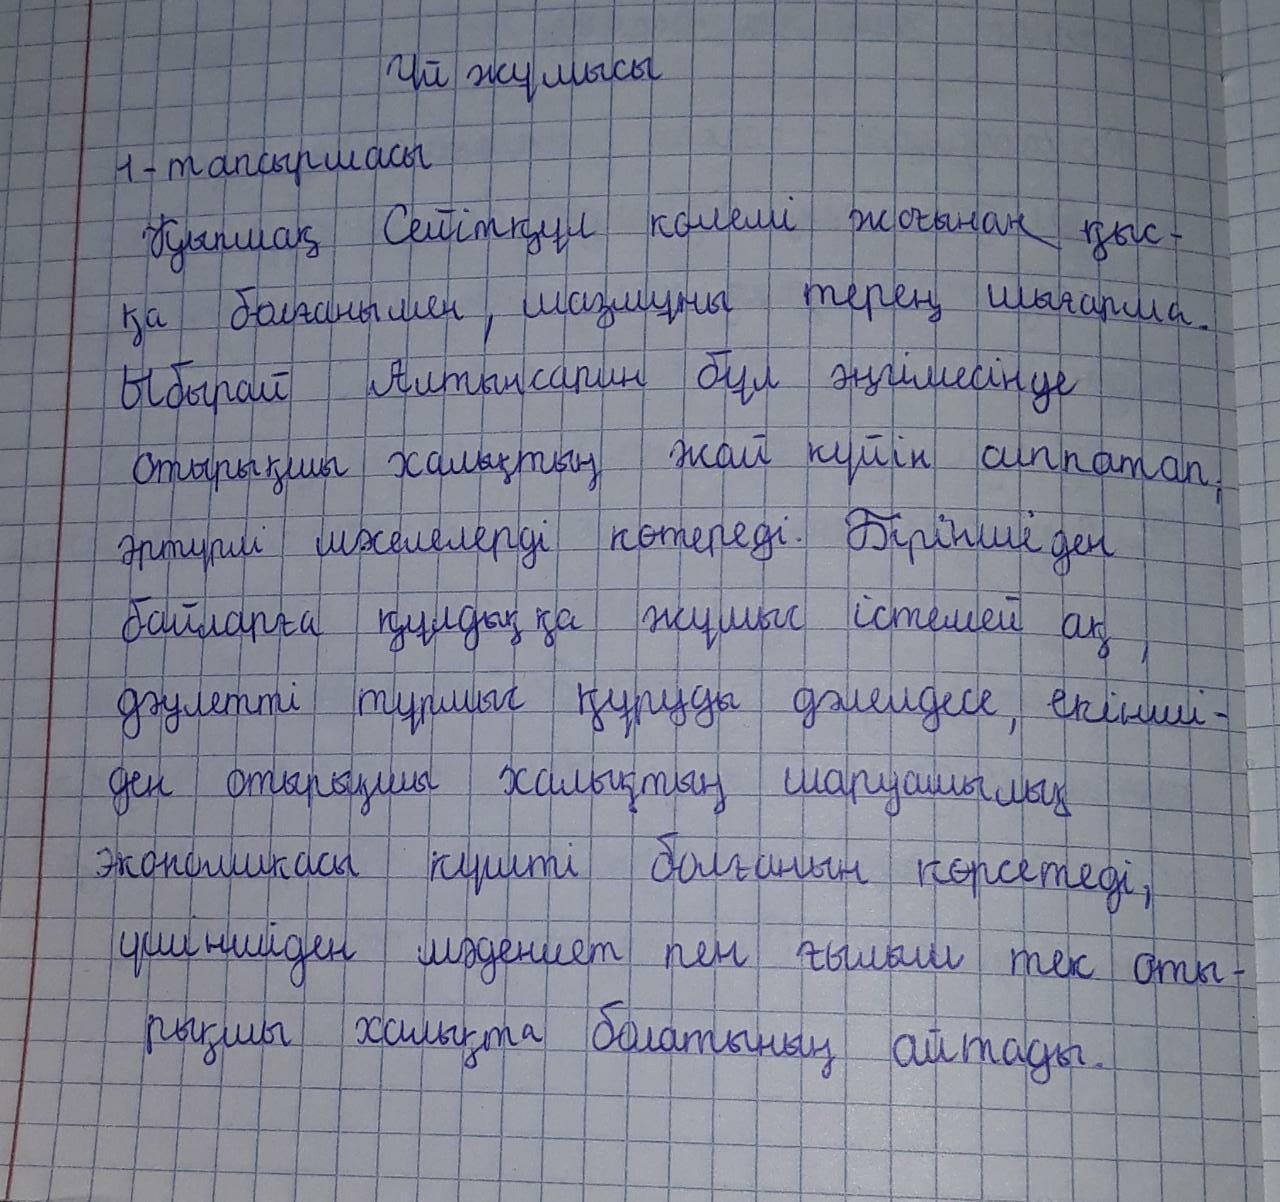 Үй жұмысы
1-тапсырмасы
Қыпшақ Сейітқұл көлемі жағынан қыс-
қа болғанымен, мазмұны терең шығарма.
Ыбырай Алтынсарин бұл әңгімесінде
отырықшы халықтың жай күйін сиппатап,
әртүрлі мәселелерді көтереді. Біріншіден
байларға құлдыққа жұмыс істемей ақ,
дәулетті тұрмыс құруды дәлелдесе, екінші-
ден отырықшы халықтың шаруашылық
экономикасы күшті болғанын көрсетеді,
үшіншіден мәдениет пен ғылым тек оты-
рықшы халықта болатының айтады.